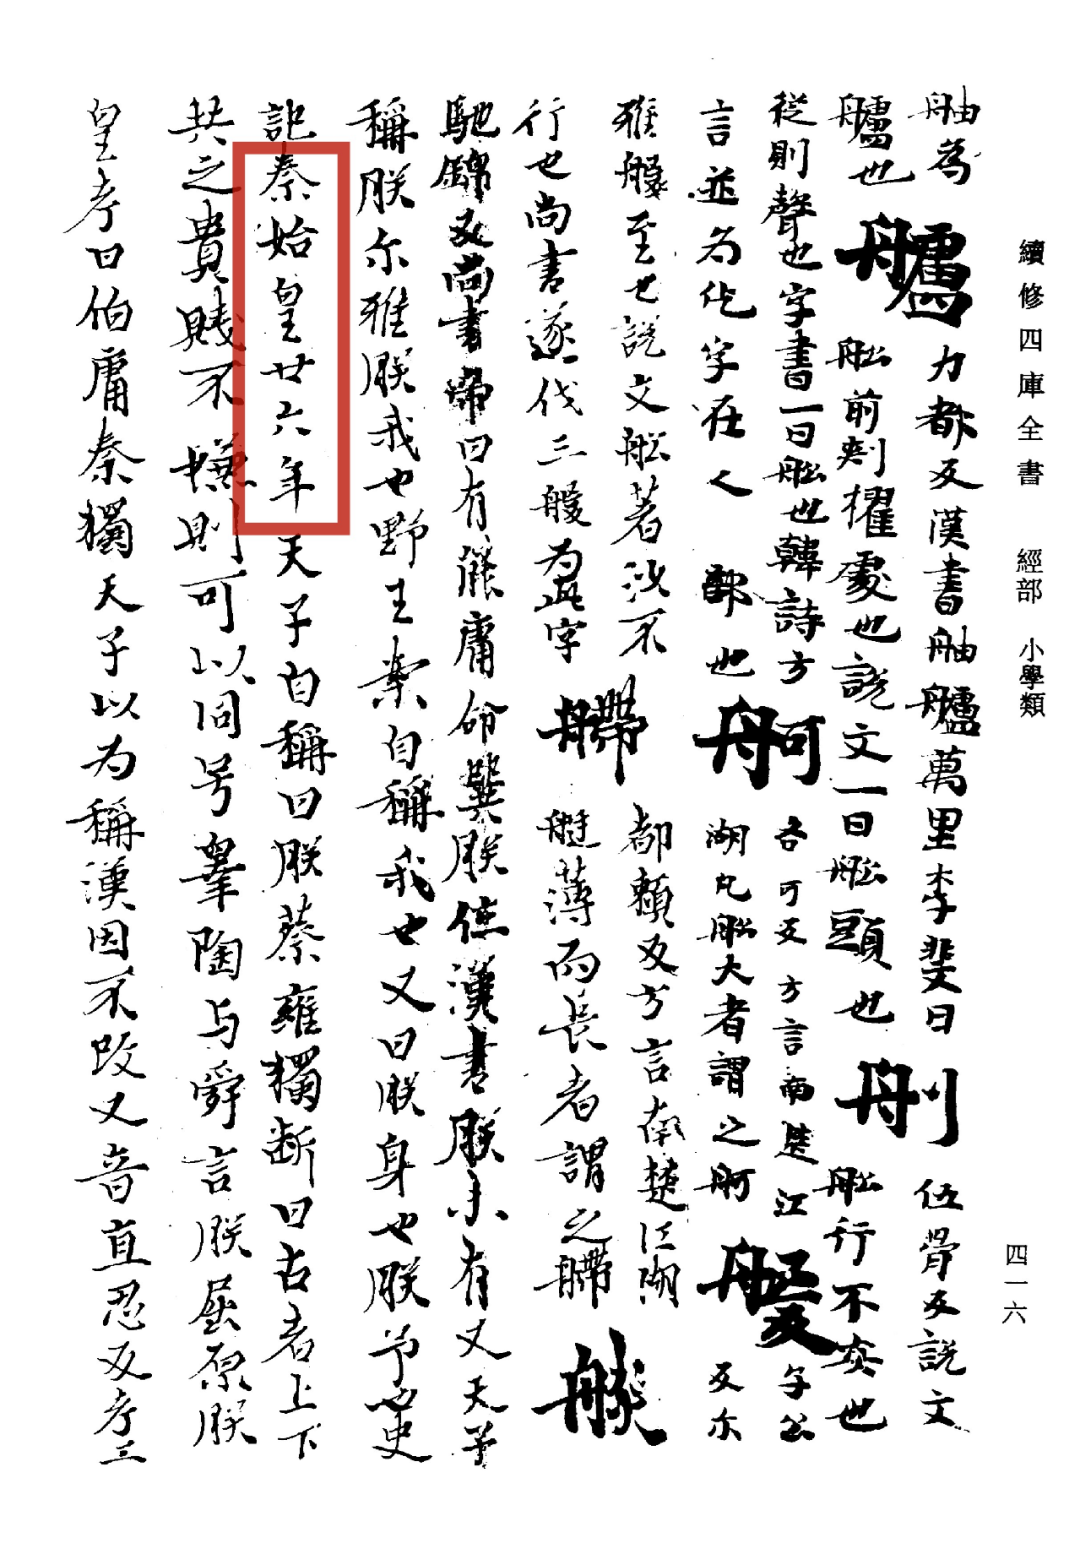 續修四庫全書 經部 小學類
四一六
舳為
艫也
艫
力都反漢書舳艫萬里李斐曰
舩前刾擢處也說文一曰舩頭也
刖
伍骨反說文
舩行不安也
從則聲也字書一曰舩也韓詩方
言並为仡字在人部也
舸
各可反方言南楚江
湖凡舩大者謂之舸
艐
子公
反尒
雅艐至也說文舩著沙不
行也尚書遂伐三艐为此字
艜
都賴反方言南楚江湖
艇薄而長者謂之艜
朕
馳錦反尚書帝曰有能庸命巽朕位漢書朕未有乂天子
稱朕尔雅朕我也野王案自稱我也又曰朕身也朕予也史
記秦始皇廿六年天子自稱曰朕蔡雍獨断曰古者上下
共之貴賤不嫌則可以同号皋陶与舜言朕屈原朕
皇考曰伯庸秦獨天子以为稱漢因不改又音直忍反考工